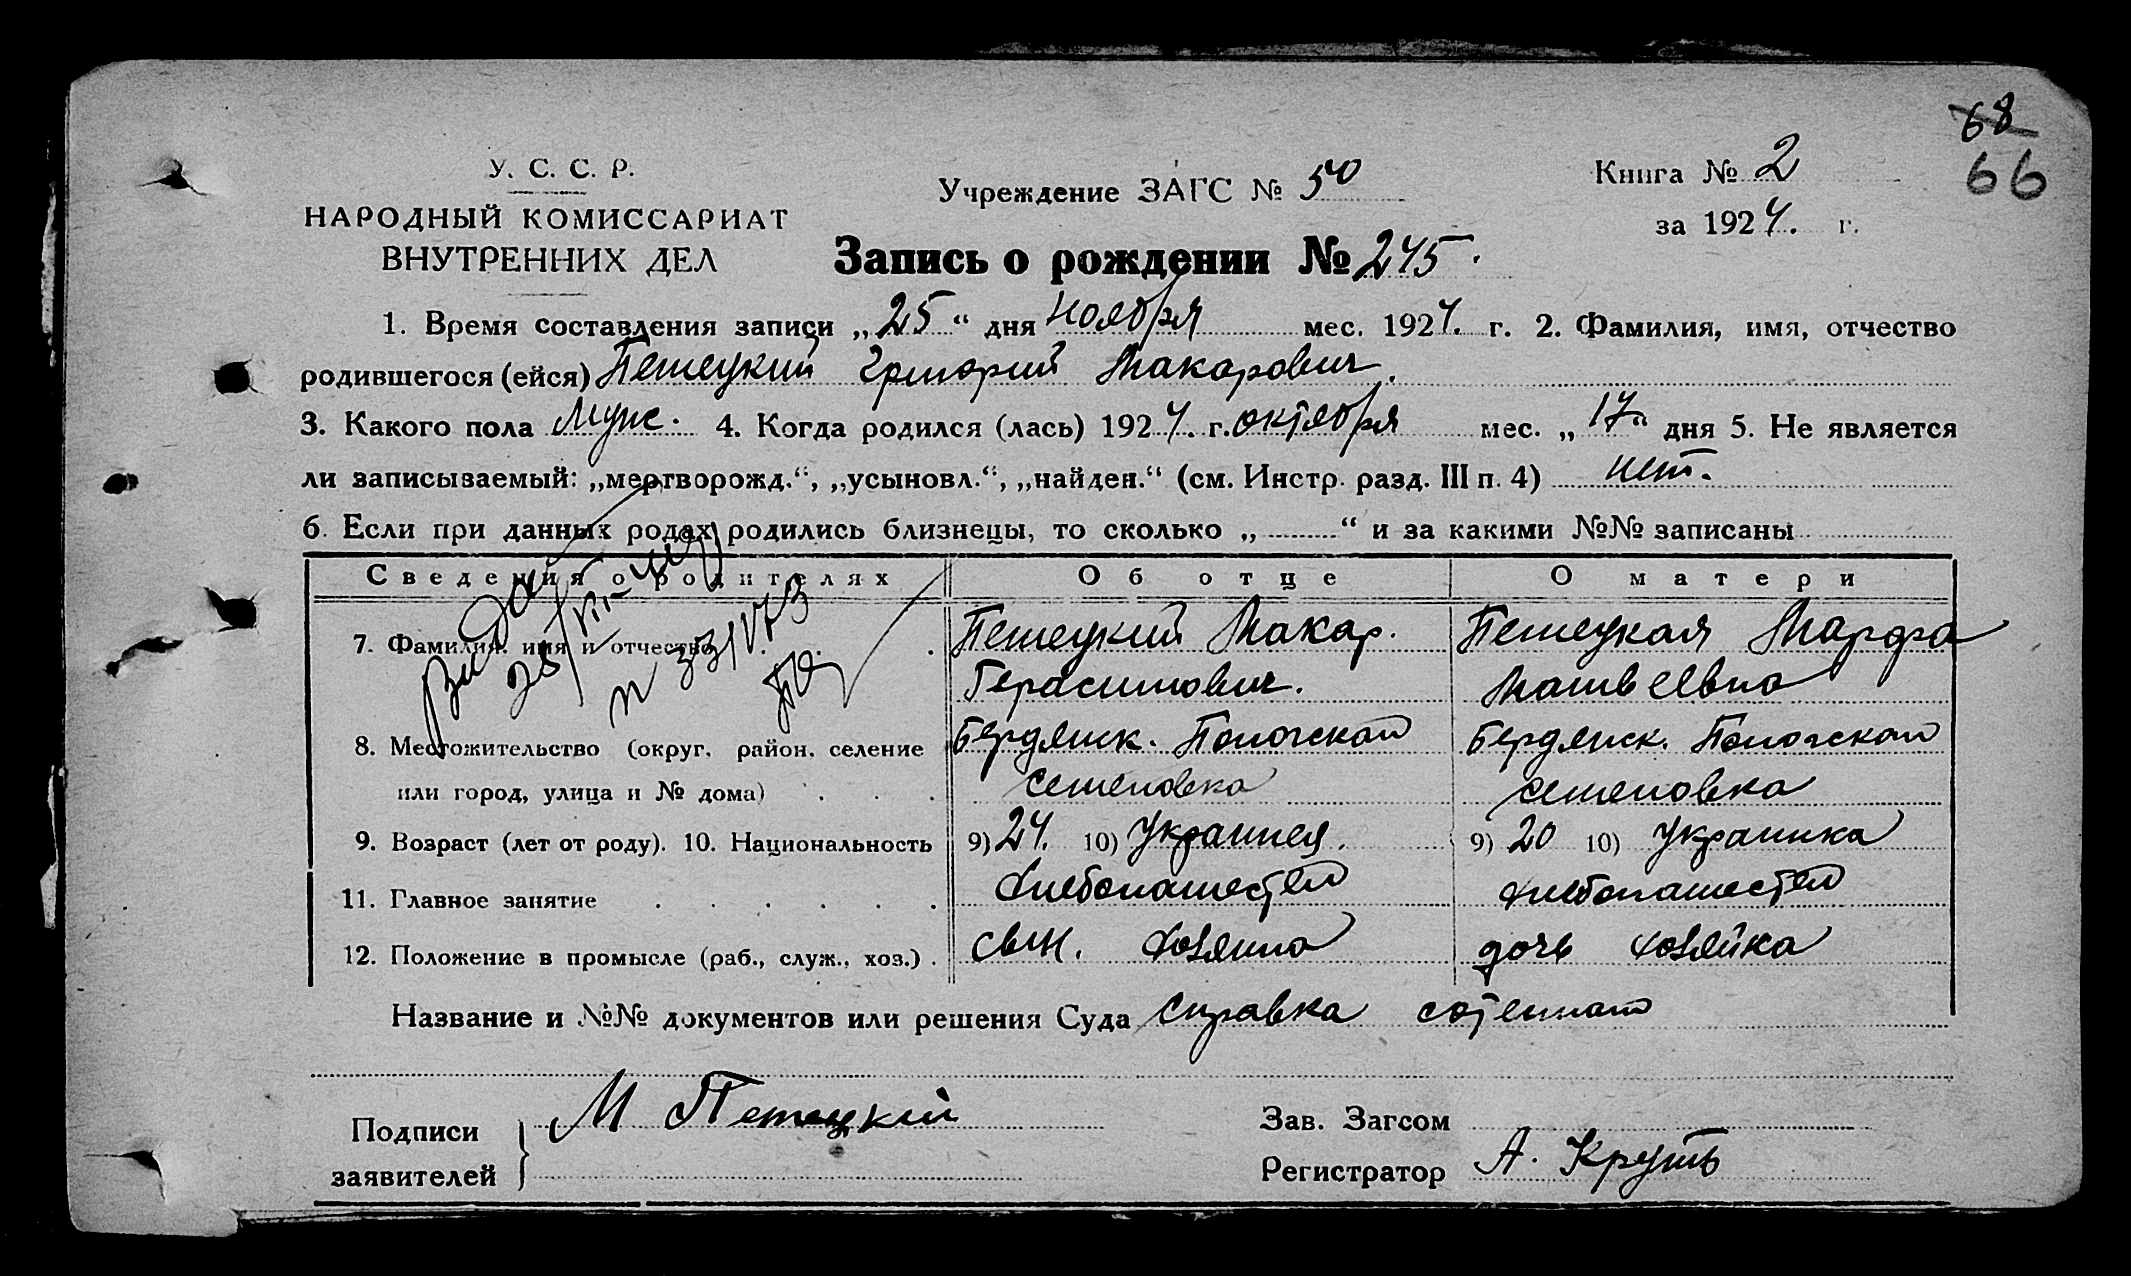 68
66
У. С. С. Р.
НАРОДНЫЙ КОМИССАРИАТ
ВНУТРЕННИХ ДЕЛ
Учреждение ЗАГС № 50
Книга № 2
за 1924. г.
Запись о рождении № 245.
1. Время составления записи „25“ дня ноября мес. 1924. г. 2. Фамилия, имя, отчество
родившегося (ейся) Петецкий Григорий Макарович.
3. Какого пола Муж. 4. Когда родился (лась) 1924. г. октября мес. „17“ дня 5. Не является
ли записываемый: „мертворожд.“, „усыновл.“, „найден.“ (см. Инстр. разд. III п. 4) нет.
6. Если при данных родах родились близнецы, то сколько „ “ и за какими №№ записаны
Сведения о родителях Об отце О матери
7. Фамилия, имя и отчество Петецкий Макар. Петецкая Марфа
Герасимович. Матвеевна
8. Местожительство (округ, район, селение Бердянск. Пологский Бердянск. Пологский
или город, улица и № дома) Семеновка Семеновка
9. Возраст (лет от роду). 10. Национальность 9) 24. 10) Украинец. 9) 20 10) Украинка
11. Главное занятие Хлебопашество Хлебопашество
12. Положение в промысле (раб., служ., хоз.) сын. хозяина дочь хозяйка
Название и №№ документов или решения Суда Справка
Подписи
заявителей
М Петецкий
Зав. Загсом
Регистратор А. Круть